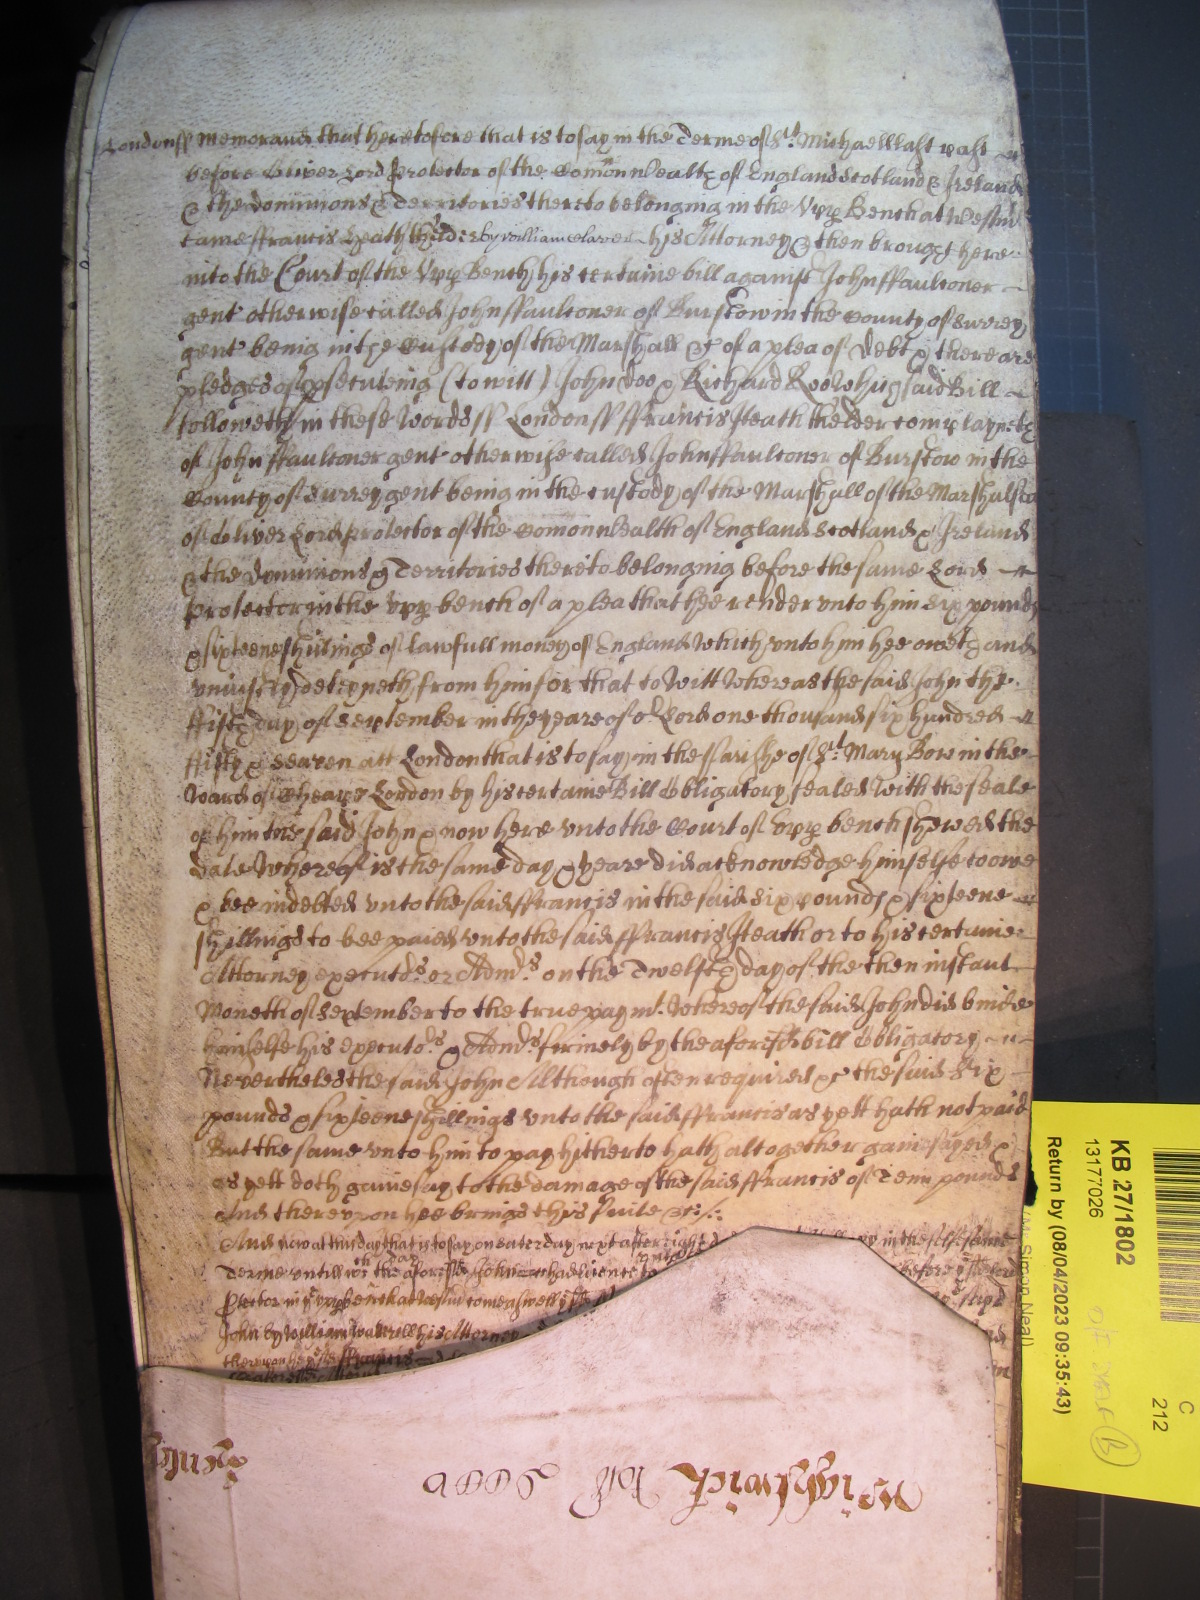 London ss Memorand that heretofore that is to say in the Terme of St. Michaell last past
before Oliver Lord Protector of the Comonwealth of England Scotland & Ireland
& the dominions & Territories thereto belonging in the Vpp Bench at Westm
came ffrancis Heath thelder by William his Attorney & then brought here
into the Court of the Vpp Bench his certaine bill against John ffaulconer
gent otherwise called John ffaulconer of Burstow in the County of Surrey
gent being in the Custody of the Marshall &c of a plea of debt & there are
pledges of psecuteing (to witt) John Doo & Richard Roo Which said Bill
followeth in these Words ss London ss ffrancis Heath thelder complayneth
of John ffaulconer gent otherwise called John ffaulconer of Burstow in the
County of Surrey gent being in the custody of the Marshall of the Marshalsea
of Oliver Lord Protector of the Comonwealth of England Scotland & Ireland
& the Dominions & Territories thereto belonging before the same Lord
Protector in the vpp bench of a plea that hee render vnto him six pounds
& sixteene shillings of lawfull money of England which vnto him hee oweth and
vniustly deteyneth from him for that to Witt Whereas the said John the
ffifth day of September in the yeare of or Lord one thousand six hundred
ffifty & seaven att London that is to say in the Parishe of St. Mary Bow in the
Ward of Cheape London by his certaine Bill Obligatory sealed With the seale
of him the said John & now here vnto the Court of vpp bench shewed the
date Whereof is the same day & yeare did acknowledge himselfe to owe
& bee indebted vnto the said ffrancis in the said six pounds & sixteene
shillings to bee paied vnto the said ffrancis Heath or to his certaine
Attorney executors or Admrs on the Twelfth day of the then instant
Moneth of September to the true paymt. Whereof the said John did binde
himselfe his executors & Admrs firmely by the aforesd bill Obligatory
Nevertheles the said John Although often required &c the said Six
pounds & sixteene shillings vnto the said ffrancis as yett hath not paid
But the same vnto him to pay hitherto hath altogether gainesayed &
as yett doth gainesay to the damage of the said ffrancis of Tenn pounds
And therevpon hee brings this suite &c
And now at this day that is to say on Saterday next after in the selfe same
Terme vntill wch day the aforesd John had licence to before the Lord
Protector in the vpp bench at Westm come aswell the
John by William his Attorney
therevpon the sd ffrancis
Wightwick
KB 27/1802
13177026
Return by (08/04/2023 09:35:43)
(Mr Simon Neal)
C
212
B